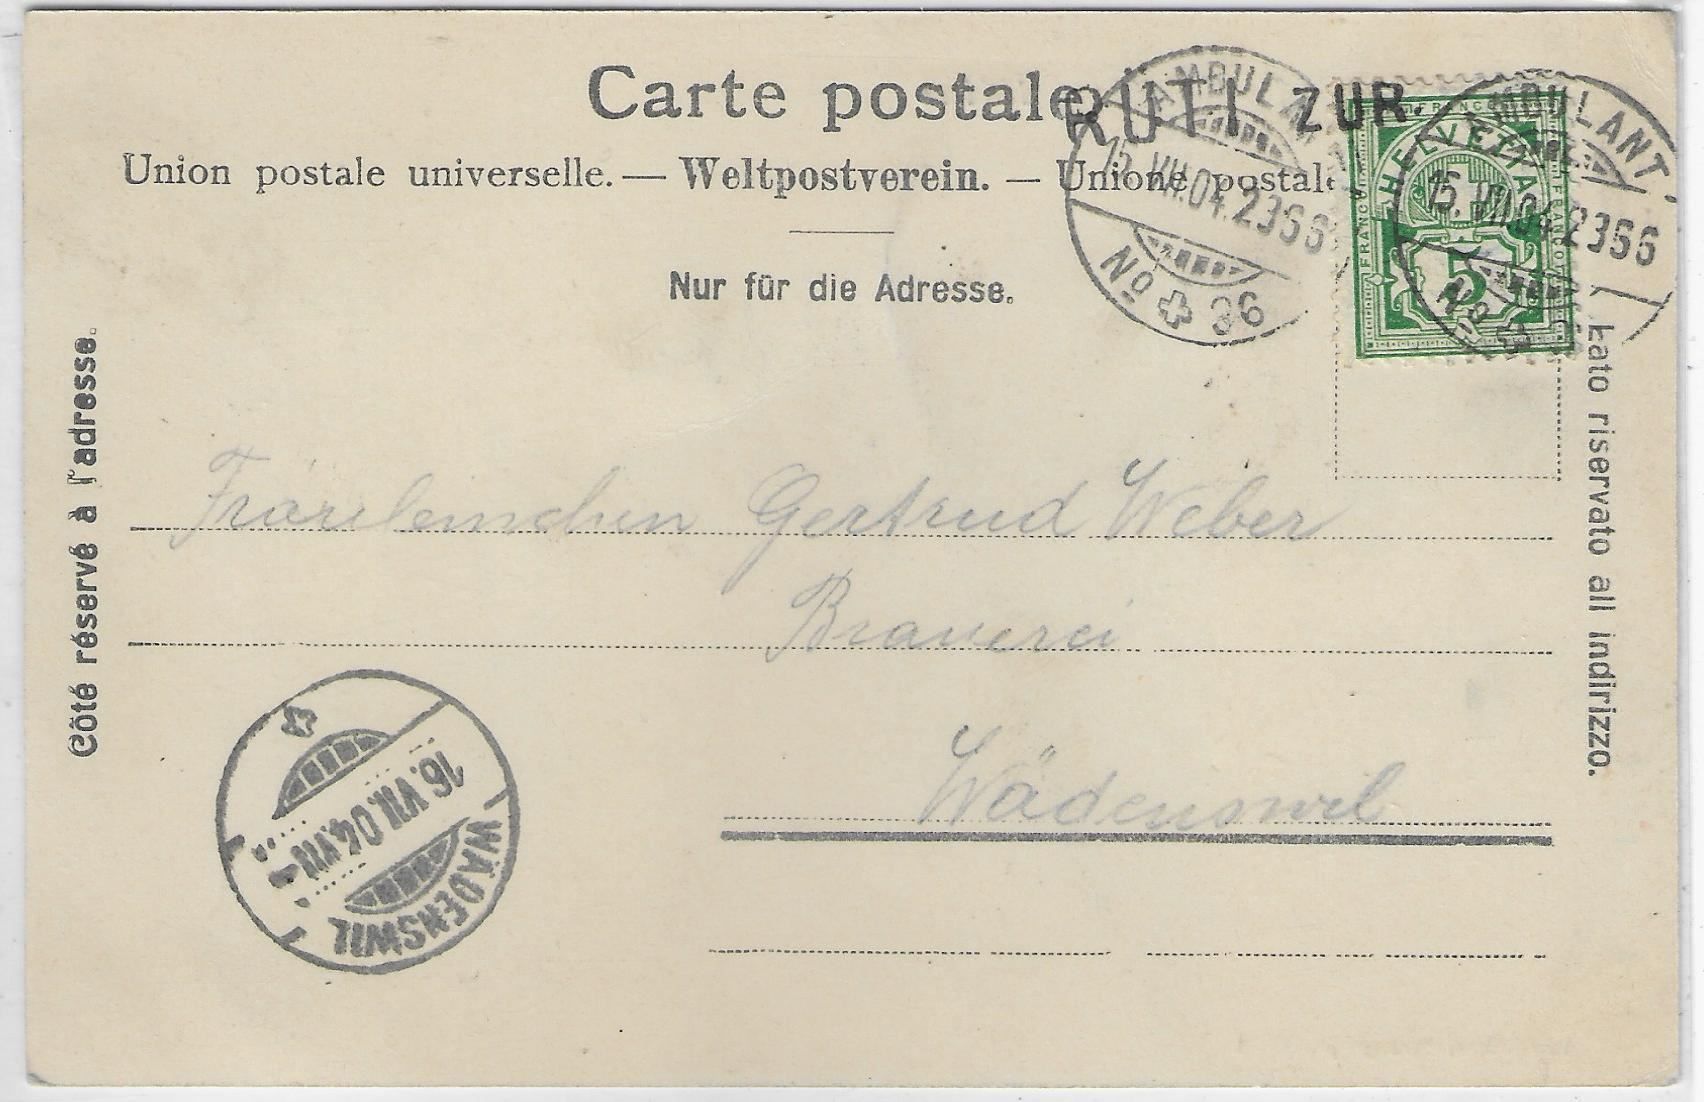 Carte postale
RÜTI ZÜR.
Union postale universelle. — Weltpostverein. — Unione postale
Nur für die Adresse.
AMBULANT
15.VII.04.2366
No 36
FRANCO
HELVETIA
5
AMBULANT
15.VII.04.2366
No
Côté réservé à l'adresse.
Lato riservato all indirizzo.
Fräuleinchen Gertrud Weber
Brauerei
Wädenswil
16.VII.04.VII
WÄDENSWIL